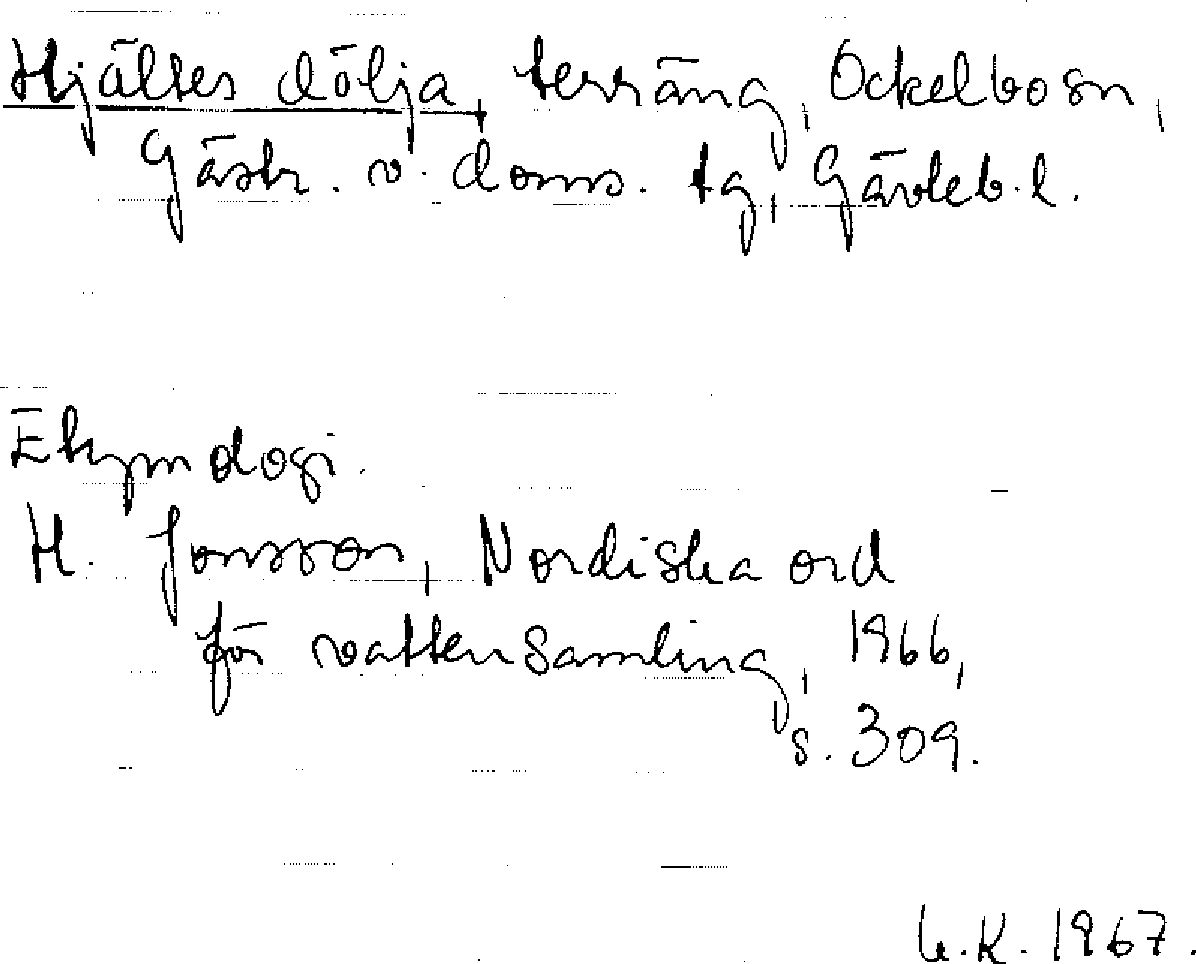 Hjältes dölja, terräng, Ockelbo sn,
Gästr. v. doms. tg, Gävleb. l.
Etymologi.
H. Jonsson, Nordiska ord
för vattensamling, 1966,
s. 309.
L.K. 1967.